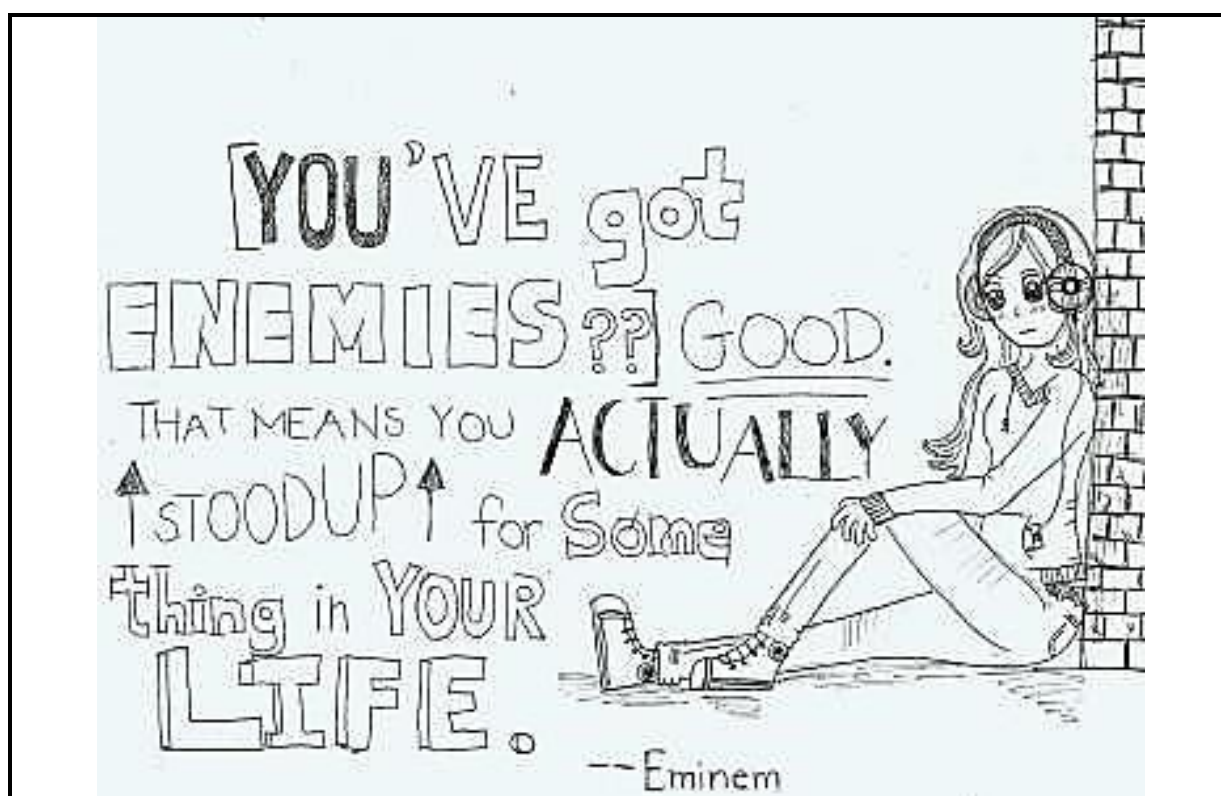 YOU'VE got
ENEMIES?? GOOD.
THAT MEANS YOU ACTUALLY
STOOD UP for Some
thing in YOUR
LIFE.
--Eminem